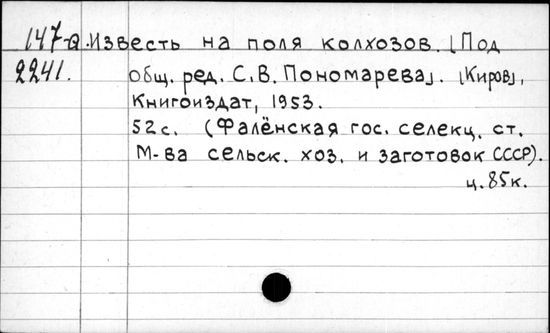 147-а. Известь на поля колхозов. [Под
2241. общ. ред. С.В. Пономарева]. [Киров],
Книгоиздат, 1953.
52с. (Фалёнская гос. селекц. ст.
М-ва сельск. хоз. и заготовок СССР).
ц. 85к.